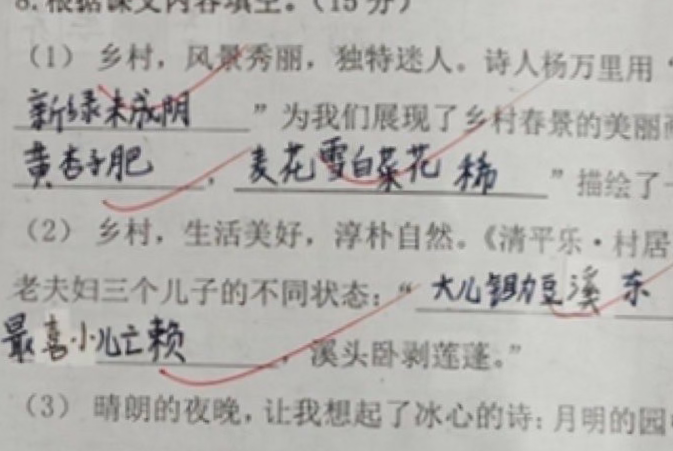 8.根据课文内容填空。(15分)
(1) 乡村，风景秀丽，独特迷人。诗人杨万里用“
新绿未成阴”为我们展现了乡村春景的美丽画
黄杏子肥，麦花雪白菜花稀”描绘了一
(2) 乡村，生活美好，淳朴自然。《清平乐·村居
老夫妇三个儿子的不同状态：“大儿锄豆溪东
最喜小儿亡赖，溪头卧剥莲蓬。”
(3) 晴朗的夜晚，让我想起了冰心的诗：月明的园中